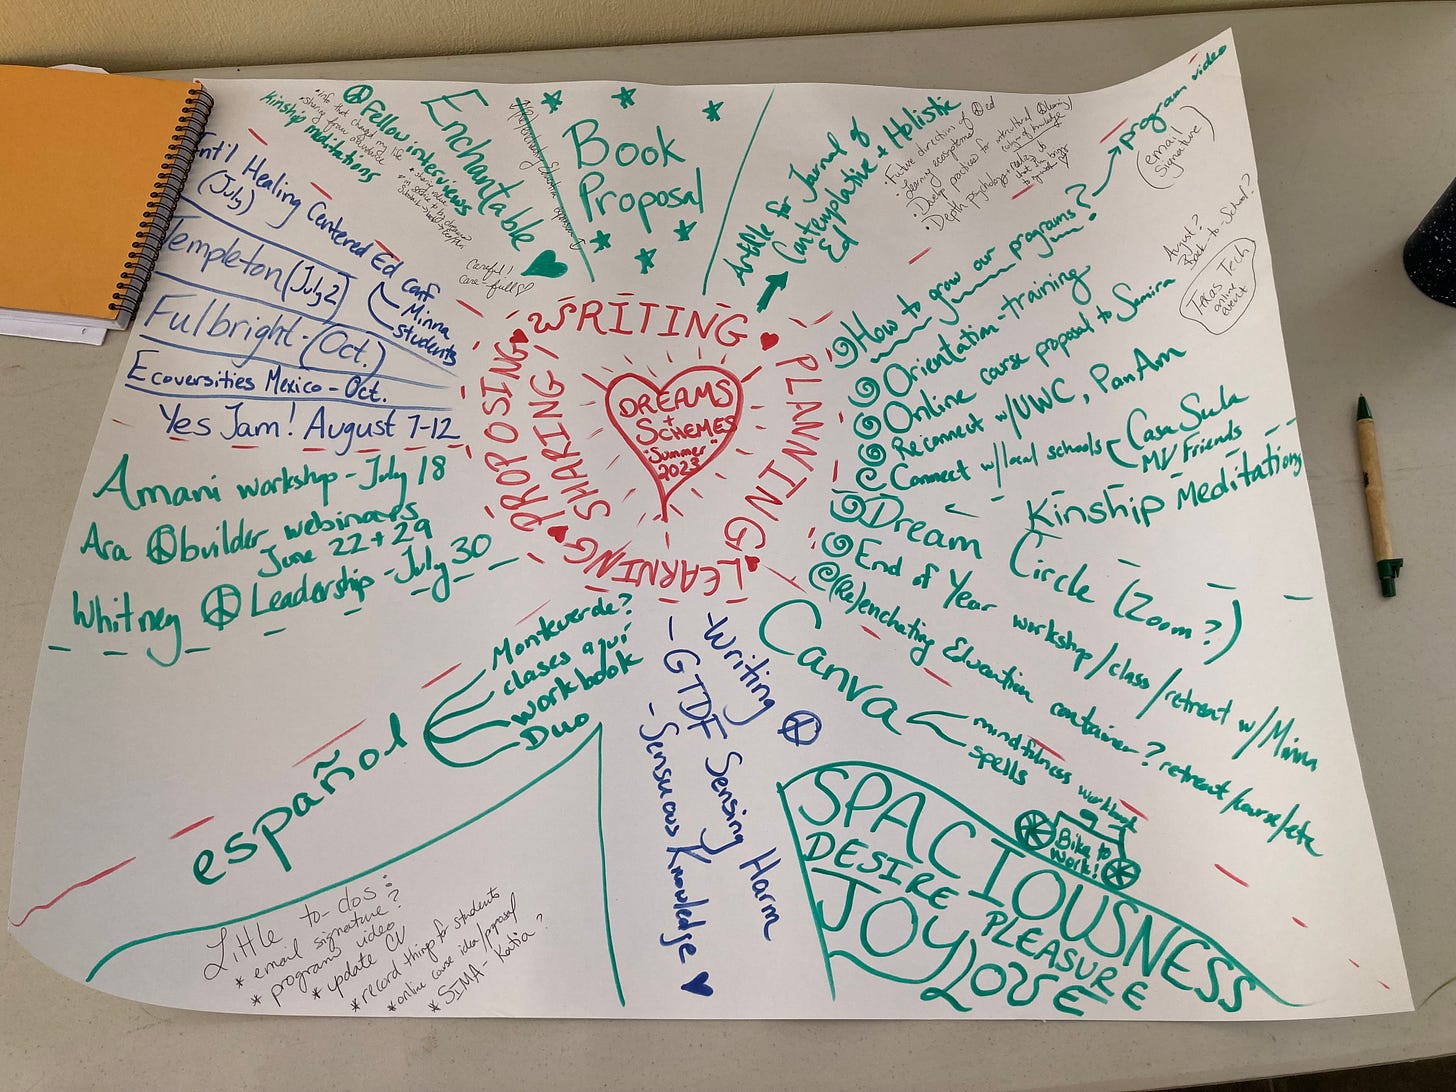 DREAMS
+
SCHEMES
"Summer"
2023
WRITING
PLANNING
LEARNING
SHARING
PROPOSING
Kinship meditations
Fellow interviews
• info that changed my life
• sharing from
Enchantable
careful!
care-full
Book
Proposal
Article for Journal of
Contemplative + Holistic
Ed
• Future directions of ed
• Learning ecosystems
• Depth psychology
How to grow our programs?
program video
(email
signature)
Orientation-training
Online course proposal to Samira
Reconnect w/UWC, PanAm
Connect w/local schools
Casa Sula
MV Friends
August?
Back-to-School?
Texas Tech
online
event
Kinship Meditations
Dream Circle (Zoom?)
End of Year workshop/class/retreat w/Minna
(Re)enchating Education container? retreat/course/etc
Canva
mindfulness workbook
spells
Bike to
work!
SPACIOUSNESS
DESIRE PLEASURE
JOY LOVE
-Writing
-GTDF Sensing Harm
-Sensuous Knowledge
español
Monteverde?
clases aquí
workbook
Duo
Little to-dos:
* email signature?
* programs video
* update CV
* record things for students
* online course idea/proposal
* SIMA - Katia?
Int'l Healing Centered Ed Conf
(July)
Minna
students
Templeton (July 2)
Fulbright - (Oct.)
Ecoversities Mexico - Oct.
Yes Jam! August 7-12
Amani workshop - July 18
Ara builder webinars
June 22 + 29
Whitney Leadership - July 30